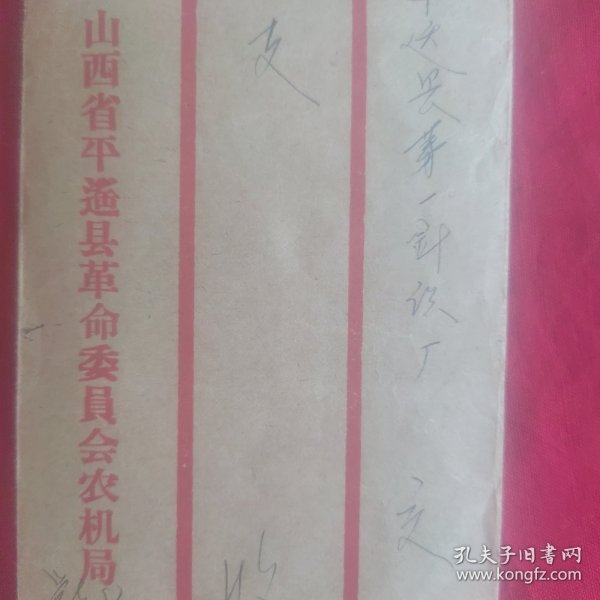 县第一針织厂 交
收
山西省平遥县革命委員会农机局
孔夫子旧书网
www.kongfz.com